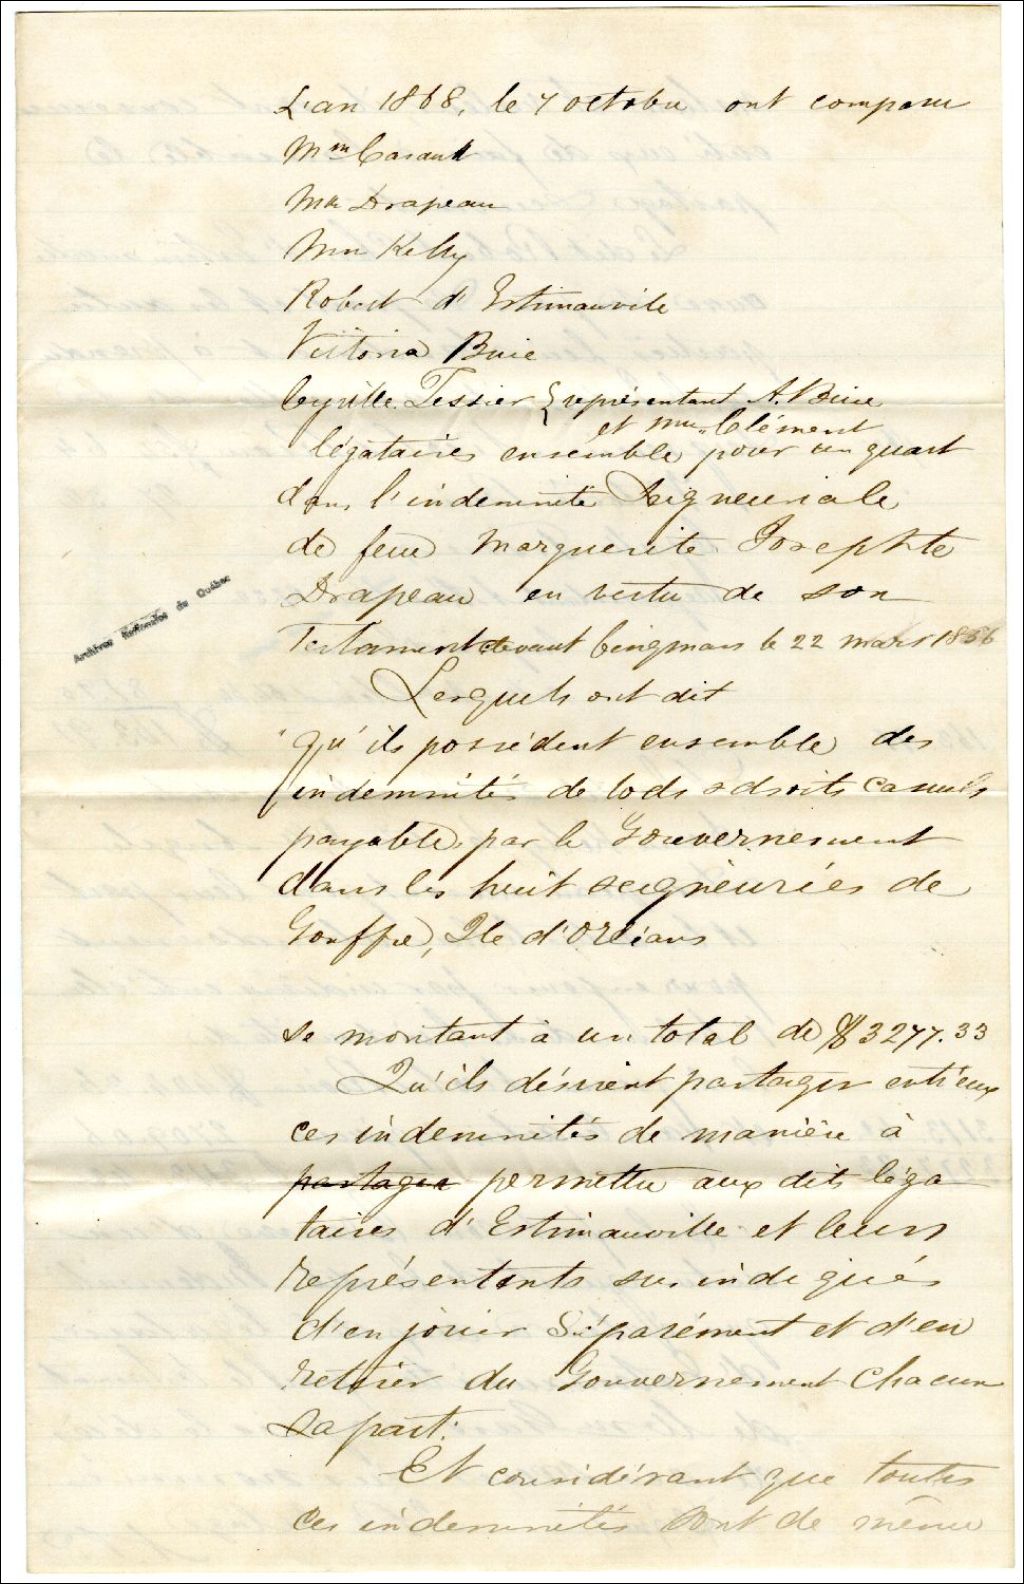 L'an 1868, le 7 octobre ont comparu
Mme Casault
Mlle Drapeau
Mme Kelly
Robert d'Estimauville
Victoria Buie
Cyrille Tessier { représentant A. Buie
et Mme Clément
légataires ensemble pour un quart
dans l'indemnité Seigneuriale
de feue Marguerite Josephte
Drapeau en vertu de son
Testament devant Cinqmars le 22 mars 1856
Lesquels ont dit
"qu'ils possèdent ensemble des
indemnités de lods & droits casuels
payable par le Gouvernement
dans les huit seigneuries de
Gouffre, Ile d'Orléans
se montant à un total de $3277.33
Qu'ils désirent partager entr'eux
ces indemnités de manière à
partager permettre aux dits léga
taires d'Estimauville et leurs
représentants sus indiqués
d'en jouir séparément et d'en
retirer du Gouvernement chacun
sa part.
Et considérant que toutes
ces indemnités sont de même
Archives Nationales du Québec